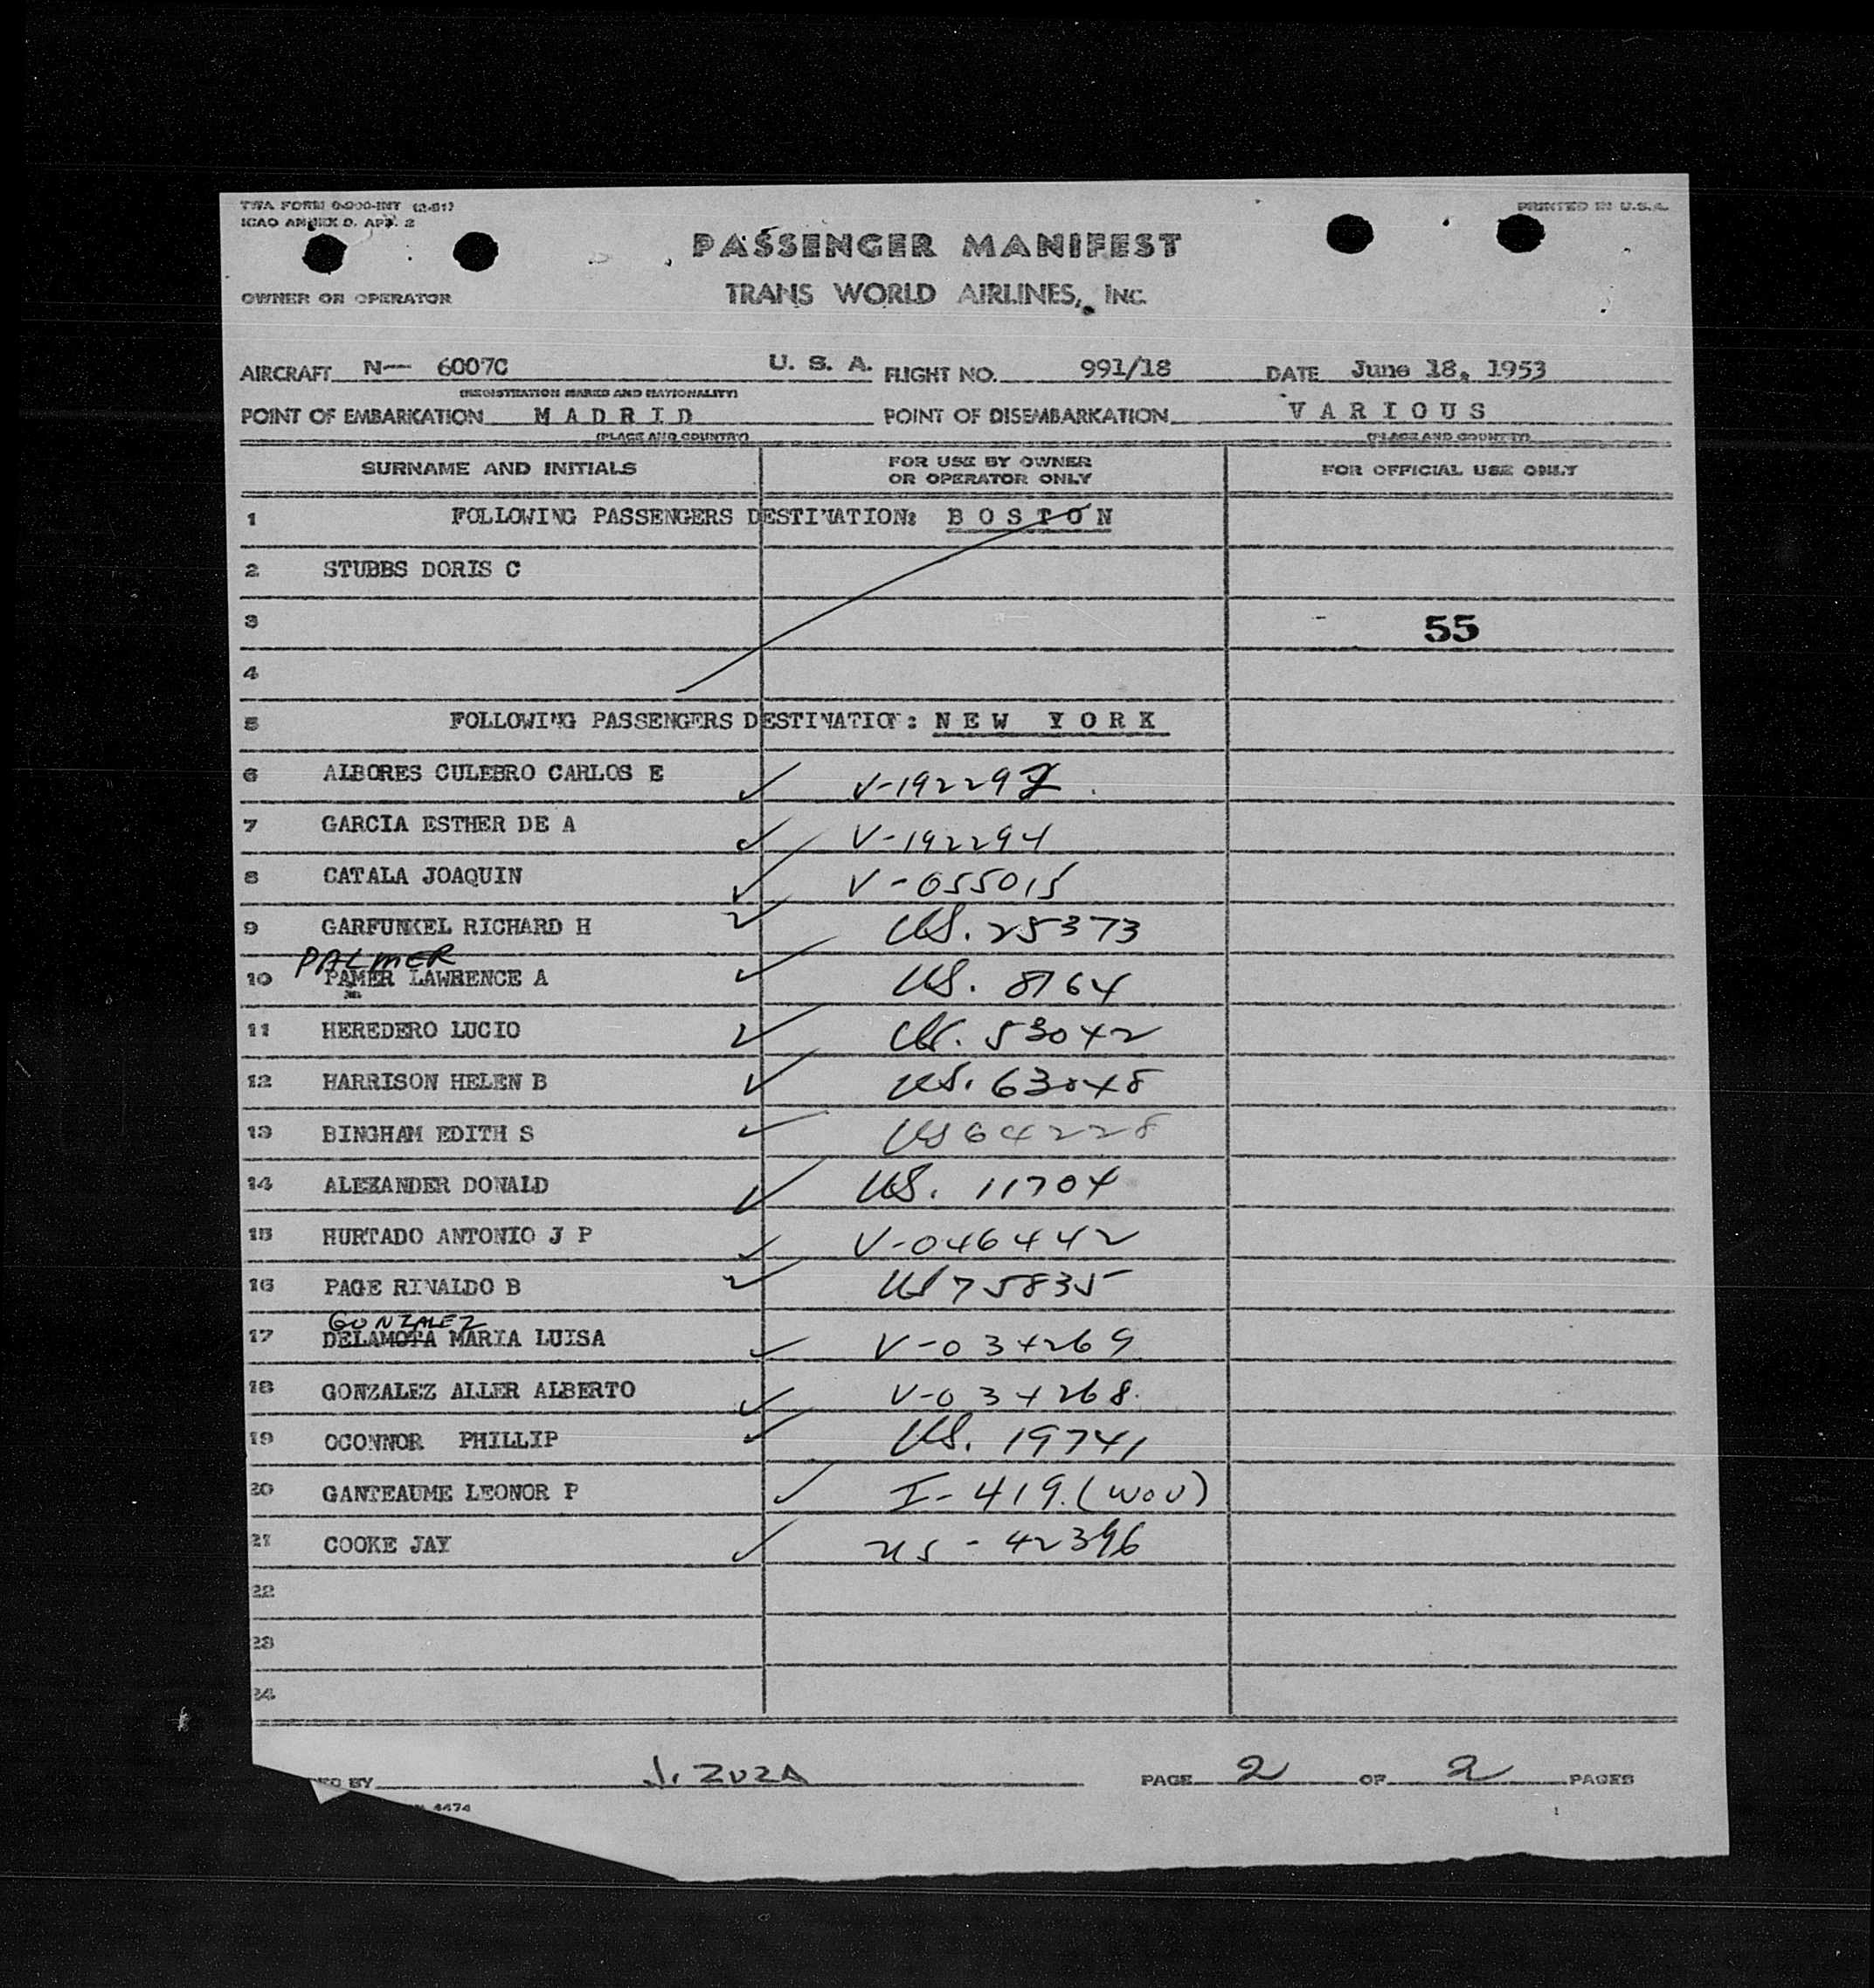 TWA FORM 0-900-INT (2-51)
ICAO ANNEX 9, APP. 2
PRINTED IN U.S.A.
PASSENGER MANIFEST
OWNER OR OPERATOR TRANS WORLD AIRLINES, INC.
AIRCRAFT N— 6007C U. S. A. FLIGHT NO. 991/18 DATE June 18, 1953
(REGISTRATION MARKS AND NATIONALITY)
POINT OF EMBARKATION M A D R I D POINT OF DISEMBARKATION V A R I O U S
(PLACE AND COUNTRY) (PLACE AND COUNTRY)
SURNAME AND INITIALS FOR USE BY OWNER OR OPERATOR ONLY FOR OFFICIAL USE ONLY
1 FOLLOWING PASSENGERS DESTINATION: B O S T O N
2 STUBBS DORIS C
3 55
4
5 FOLLOWING PASSENGERS DESTINATION: N E W Y O R K
6 ALBORES CULEBRO CARLOS E ✓ V-192297
7 GARCIA ESTHER DE A ✓ V-192294
8 CATALA JOAQUIN ✓ V-055015
9 GARFUNKEL RICHARD H ✓ US. 25373
PALMER
10 PAMER LAWRENCE A ✓ US. 8764
11 HEREDERO LUCIO ✓ US. 53042
12 HARRISON HELEN B ✓ US. 63048
13 BINGHAM EDITH S ✓ US 64228
14 ALEXANDER DONALD ✓ US. 11704
15 HURTADO ANTONIO J P ✓ V-046442
16 PAGE RINALDO B ✓ US 75835
GONZALEZ
17 DELAMOTA MARIA LUISA ✓ V-034269
18 GONZALEZ ALLER ALBERTO ✓ V-034268
19 OCONNOR PHILLIP ✓ US. 19741
20 GANTEAUME LEONOR P ✓ I-419. (WOV)
21 COOKE JAY ✓ US - 42396
22
23
24
ED BY J. ZUZA PAGE 2 OF 2 PAGES
4474